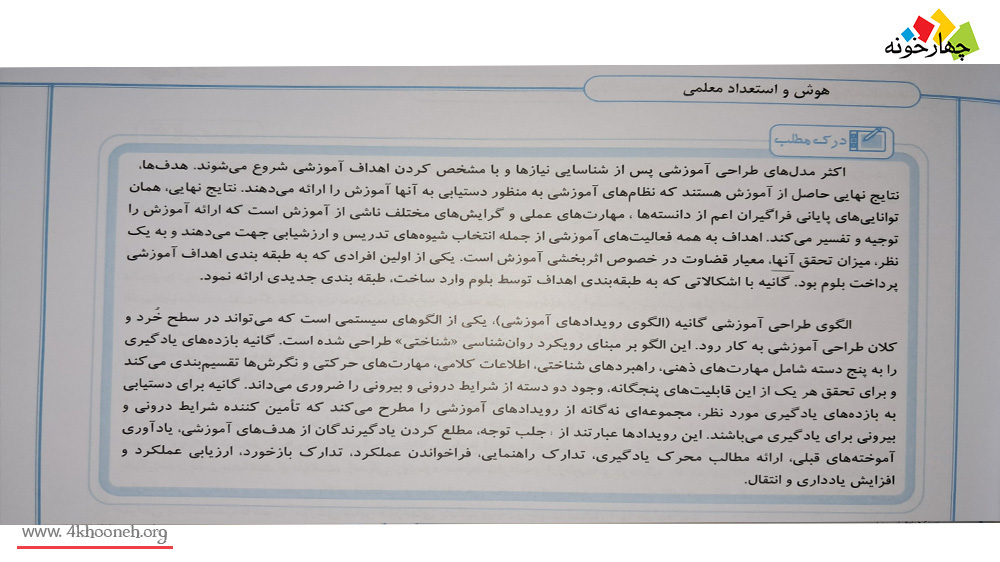 چهارخونه
هوش و استعداد معلمی
درک مطلب
اکثر مدل‌های طراحی آموزشی پس از شناسایی نیازها و با مشخص کردن اهداف آموزشی شروع می‌شوند. هدف‌ها،
نتایج نهایی حاصل از آموزش هستند که نظام‌های آموزشی به منظور دستیابی به آنها آموزش را ارائه می‌دهند. نتایج نهایی، همان
توانایی‌های پایانی فراگیران اعم از دانسته‌ها ، مهارت‌های عملی و گرایش‌های مختلف ناشی از آموزش است که ارائه آموزش را
توجیه و تفسیر می‌کند. اهداف به همه فعالیت‌های آموزشی از جمله انتخاب شیوه‌های تدریس و ارزشیابی جهت می‌دهند و به یک
نظر، میزان تحقق آنها، معیار قضاوت در خصوص اثربخشی آموزش است. یکی از اولین افرادی که به طبقه بندی اهداف آموزشی
پرداخت بلوم بود. گانیه با اشکالاتی که به طبقه‌بندی اهداف توسط بلوم وارد ساخت، طبقه بندی جدیدی ارائه نمود.
الگوی طراحی آموزشی گانیه (الگوی رویدادهای آموزشی)، یکی از الگوهای سیستمی است که می‌تواند در سطح خُرد و
کلان طراحی آموزشی به کار رود. این الگو بر مبنای رویکرد روان‌شناسی «شناختی» طراحی شده است. گانیه بازده‌های یادگیری
را به پنج دسته شامل مهارت‌های ذهنی، راهبردهای شناختی، اطلاعات کلامی، مهارت‌های حرکتی و نگرش‌ها تقسیم‌بندی می‌کند
و برای تحقق هر یک از این قابلیت‌های پنجگانه، وجود دو دسته از شرایط درونی و بیرونی را ضروری می‌داند. گانیه برای دستیابی
به بازده‌های یادگیری مورد نظر، مجموعه‌ای نه‌گانه از رویدادهای آموزشی را مطرح می‌کند که تأمین کننده شرایط درونی و
بیرونی برای یادگیری می‌باشند. این رویدادها عبارتند از : جلب توجه، مطلع کردن یادگیرندگان از هدف‌های آموزشی، یادآوری
آموخته‌های قبلی، ارائه مطالب محرک یادگیری، تدارک راهنمایی، فراخواندن عملکرد، تدارک بازخورد، ارزیابی عملکرد و
افزایش یادداری و انتقال.
www. 4khooneh.org